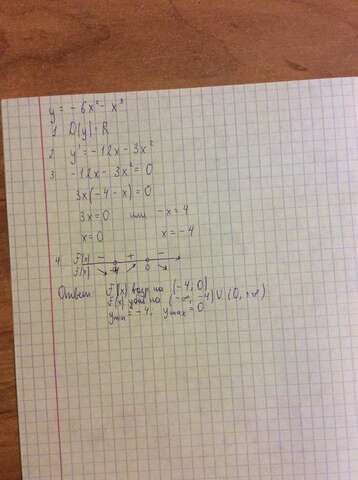 y = -6x² - x³
1. D(y): R
2. y' = -12x - 3x²
3. -12x - 3x² = 0
3x(-4 - x) = 0
3x = 0 или -x = 4
x = 0 x = -4
4. f'(x) - + -
f(x) -4 0
Ответ: f(x) возр на (-4; 0)
f(x) убыв на (-∞; -4) ∪ (0; +∞)
y min = -4; y max = 0